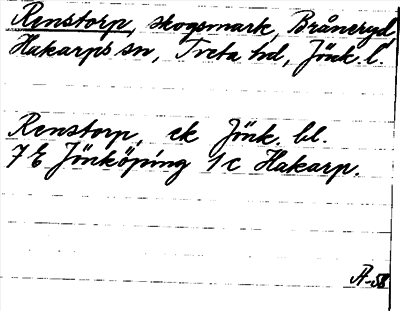 Renstorp, skogsmark, Bråneryd
Hakarps sn, Tveta hd, Jönk. l.
Renstorp, ek Jönk. bl.
7 E Jönköping 1 c Hakarp.
A-58